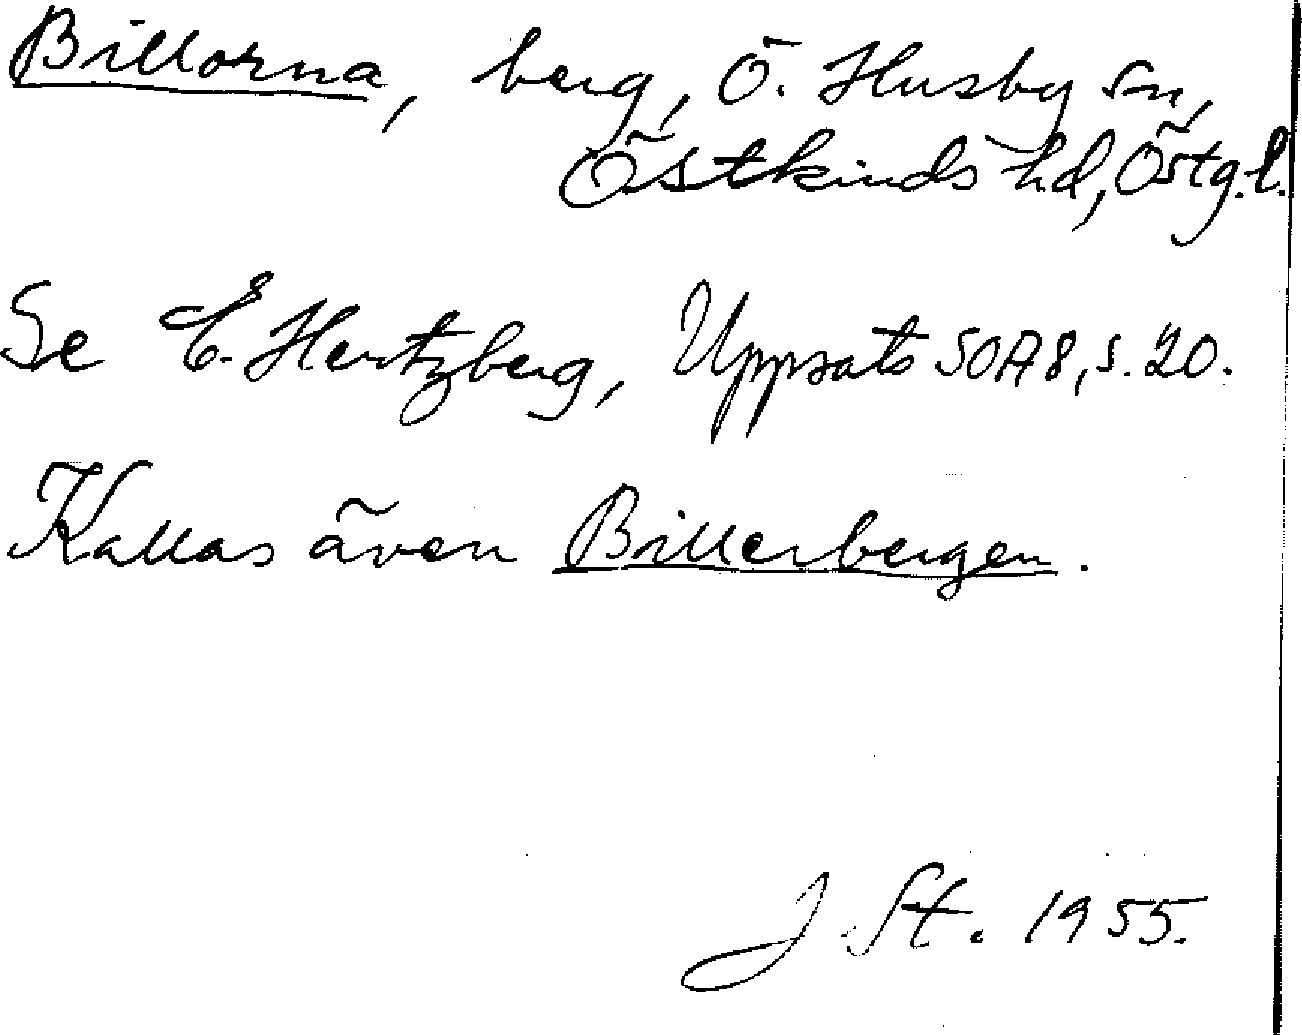 Billorna, berg, Ö. Husby sn,
Östkinds hd, Östg.l.
Se E. Hertzberg, Uppsats SOA8, s. 20.
Kallas även Billerbergen.
J. St. 1955.